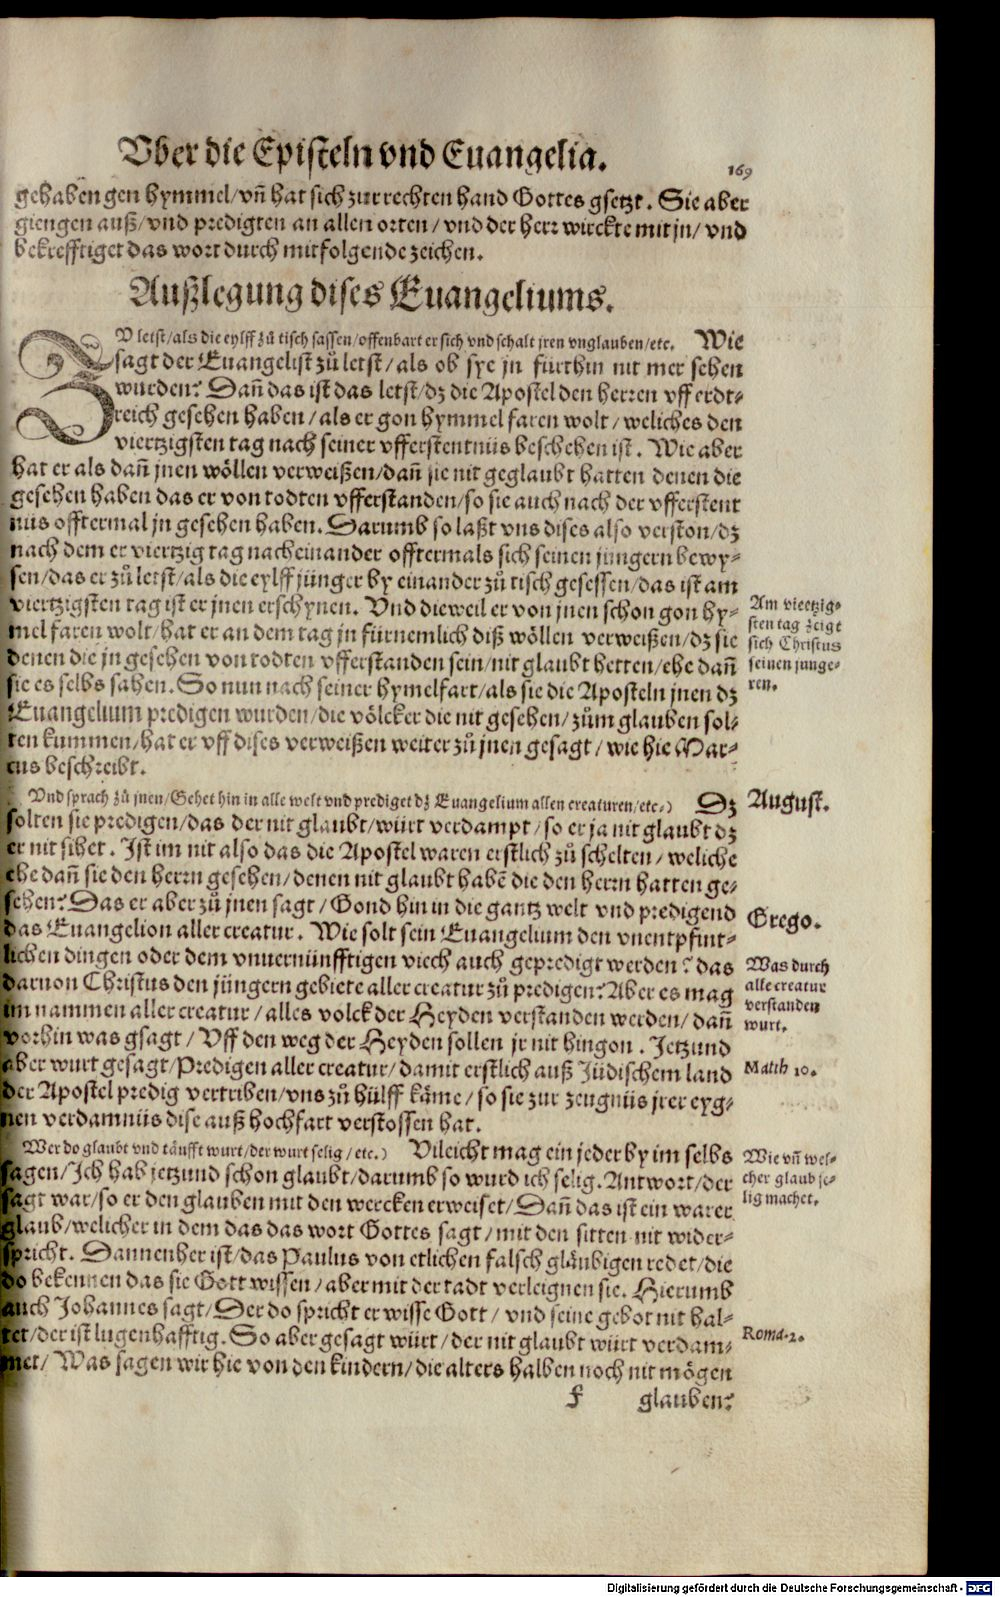 Vber die Episteln vnd Euangelia.
169
gehaben gen hymmel/ vñ hat sich zur rechten hand Gottes gsetzt. Sie aber
giengen auß/ vnd predigten an allen orten/ vnd der herr wirckte mit jn/ vnd
bekrefftiget das wort durch mitfolgende zeichen.
Außlegung dises Euangeliums.
ZV letst/ als die eylff zů tisch sassen/ offenbart er sich vnd schalt jren vnglauben/ etc. Wie
sagt der Euangelist zů letst/ als ob sye jn fürthin nit mer sehen
wurden? Dañ das ist das letst/ dz die Apostel den herren vff erdt-
reich gesehen haben/ als er gon hymmel faren wolt/ weliches den
viertzigsten tag nach seiner vfferstentnüs beschehen ist. Wie aber
hat er als dañ jnen wöllen verweißen/ dañ sie nit geglaubt hatten denen die
gesehen haben das er von todten vfferstanden/ so sie auch nach der vfferstent
nüs offtermal jn gesehen haben. Darumb so laßt vns dises also verston/ dz
nach dem er viertzig tag nacheinander offtermals sich seinen jüngern bewy-
sen/ das er zů letst/ als die eylff jünger by einander zů tisch gesessen/ das ist am
viertzigsten tag ist er jnen erschynen. Vnd dieweil er von jnen schon gon hy-
mel faren wolt/ hat er an dem tag jn fürnemlich diß wöllen verweißen/ dz sie
denen die jn gesehen von todten vfferstanden sein/ nit glaubt hetten/ ehe dañ
sie es selbs sahen. So nun nach seiner hymelfart/ als sie die Aposteln jnen dz
Euangelium predigen wurden/ die völcker die nit gesehen/ zům glauben sol-
ten kummen/ hat er vff dises verweißen weiter zů jnen gesagt/ wie hie Mar-
cus beschreibt.
Am viertzig-
sten tag zeigt
sich Christus
seinen junge-
ren.
Vnd sprach zů jnen/ Gehet hin in alle welt vnd prediget dz Euangelium allen creaturen/ etc.) Dz
solten sie predigen/ das der nit glaubt/ würt verdampt/ so er ja nit glaubt dz
er nit sihet. Ist im nit also das die Apostel waren erstlich zů schelten/ weliche
ehe dañ sie den herrn gesehen/ denen nit glaubt habẽ die den herrn hatten ge-
sehen? Das er aber zů jnen sagt/ Gond hin in die gantz welt vnd predigend
das Euangelion aller creatur. Wie solt sein Euangelium den vnentpfint-
lichen dingen oder dem vnuernünfftigen viech auch gepredigt werden? das
daruon Christus den jüngern gebiete aller creatur zů predigen? Aber es mag
im nammen aller creatur/ alles volck der Heyden verstanden werden/ dañ
vorhin was gsagt/ Vff den weg der Heyden sollen jr nit hingon. Jetzund
aber wurt gesagt/ Predigen aller creatur/ damit erstlich auß Jüdischem land
der Apostel predig vertriben/ vns zů hülff käme/ so sie zur zeugnüs jrer eyg-
nen verdamnüs dise auß hochfart verstossen hat.
August.
Grego.
Was durch
alle creatur
verstanden
wurt.
Matth 10.
Wer do glaubt vnd täufft wurt/ der wurt selig/ etc.) Vileicht mag ein jeder by im selbs
sagen/ Ich hab jetzund schon glaubt/ darumb so wurd ich selig. Antwort/ der
sagt war/ so er den glauben mit den wercken erweiset/ Dañ das ist ein warer
glaub/ welicher in dem das das wort Gottes sagt/ mit den sitten nit wider-
spricht. Dannenher ist/ das Paulus von etlichen falsch gläubigen redet/ die
do bekennen das sie Gott wissen/ aber mit der tadt verleignen sie. Hierumb
auch Johannes sagt/ Der do spricht er wisse Gott/ vnd seine gebot nit hal-
tet/ der ist lugenhafftig. So aber gesagt würt/ der nit glaubt würt verdam-
met/ Was sagen wir hie von den kindern/ die alters halben noch nit mögen
Wie vñ wel-
cher glaub se-
lig machet.
Roma. 2.
f glauben?
Digitalisierung gefördert durch die Deutsche Forschungsgemeinschaft - DFG